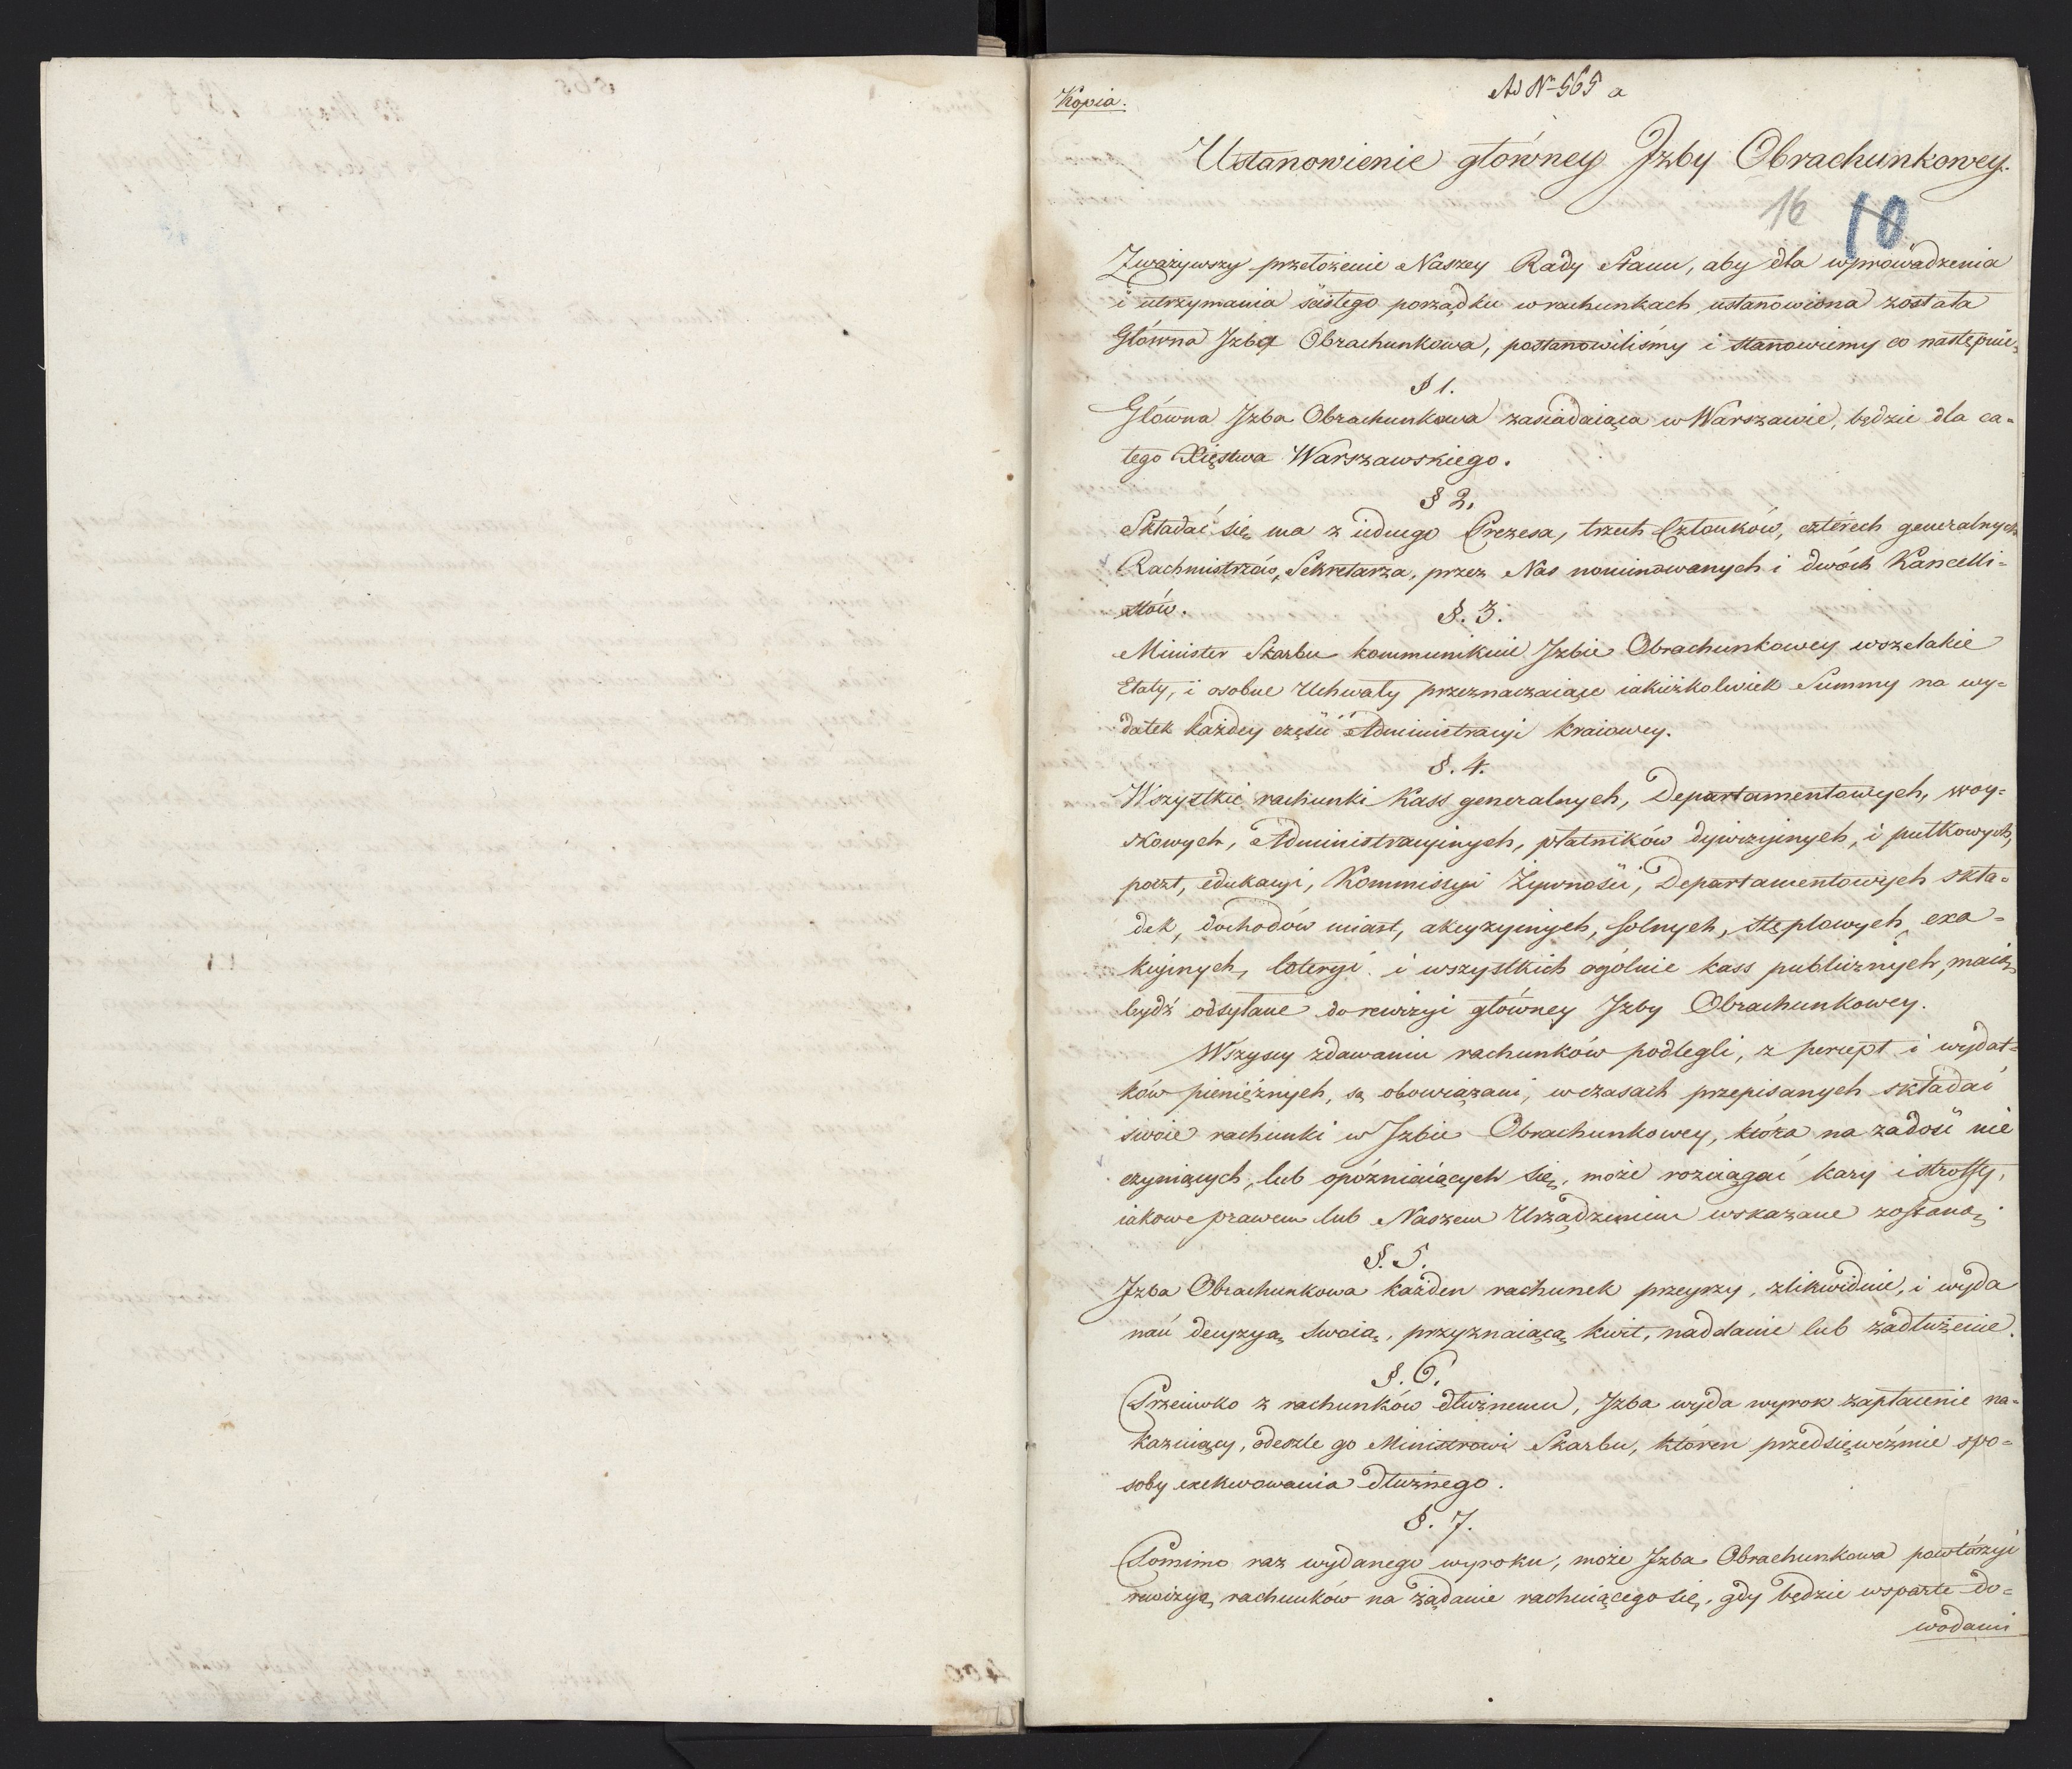 Kopia.
Ad Nº 565 a
Ustanowienie główney Jzby Obrachunkowey.
16 10
Zważywszy przełożenie Naszey Rady Stanu, aby dla wprowadzenia
i utrzymania ścisłego porządku w rachunkach ustanowiona została
Główna Jzba Obrachunkowa, postanowiliśmy i stanowiemy co następuie,
§ 1.
Główna Jzba Obrachunkowa zasiadaiąca w Warszawie, będzie dla ca=
łego Xięstwa Warszawskiego.
§ 2.
Składać się ma z iednego Prezesa, trzech Członków, czterech generalnych
Rachmistrzów, Sekretarza, przez Nas nominowanych i dwóch Kancelli=
stów.
§. 3.
Minister Skarbu kommunikuie Jzbie Obrachunkowey wszelakie
Etaty, i osobne Uchwały przeznaczaiące iakieżkolwiek Summy na wy=
datek każdey części Administracyi kraiowey.
§. 4.
Wszystkie rachunki Kass generalnych, Departamentowych, woy=
skowych, Administracyinych, płatników dywizyinych, i pułkowych,
poczt, edukacyi, Kommissyi Żywności, Departamentowych skła=
dek, dochodów miast, akcyzyinych, solnych, stęplowych, exa=
kcyinych, loteryi i wszystkich ogólnie kass publicznych, maią
bydź odsyłane do rewizyi główney Jzby Obrachunkowey.
Wszyscy zdawaniu rachunków podlegli, z percept i wydat=
ków pieniężnych, są obowiązani, w czasach przepisanych składać
swoie rachunki w Jzbie Obrachunkowey, która na zadość nie
czyniących, lub opóźniaiących się, może rozciągać kary i stroffy,
iakowe prawem lub Naszem Urządzeniem wskazane zostaną.
§. 5.
Jzba Obrachunkowa każden rachunek przeyrzy, zlikwiduie, i wyda
nań decyzyą swoią, przyznaiącą kwit, naddanie lub zadłużenie.
§. 6.
Przeciwko z rachunków dłużnemu, Jzba wyda wyrok zapłacenie na=
kazuiący, odeszle go Ministrowi Skarbu, któren przedsięweźmie spo=
soby exekwowania dłużnego.
§. 7.
Pomimo raz wydanego wyroku, może Jzba Obrachunkowa powtórzyć
rewizyą rachunków na żądanie rachuiącego się, gdy będzie wsparte do=
wodami